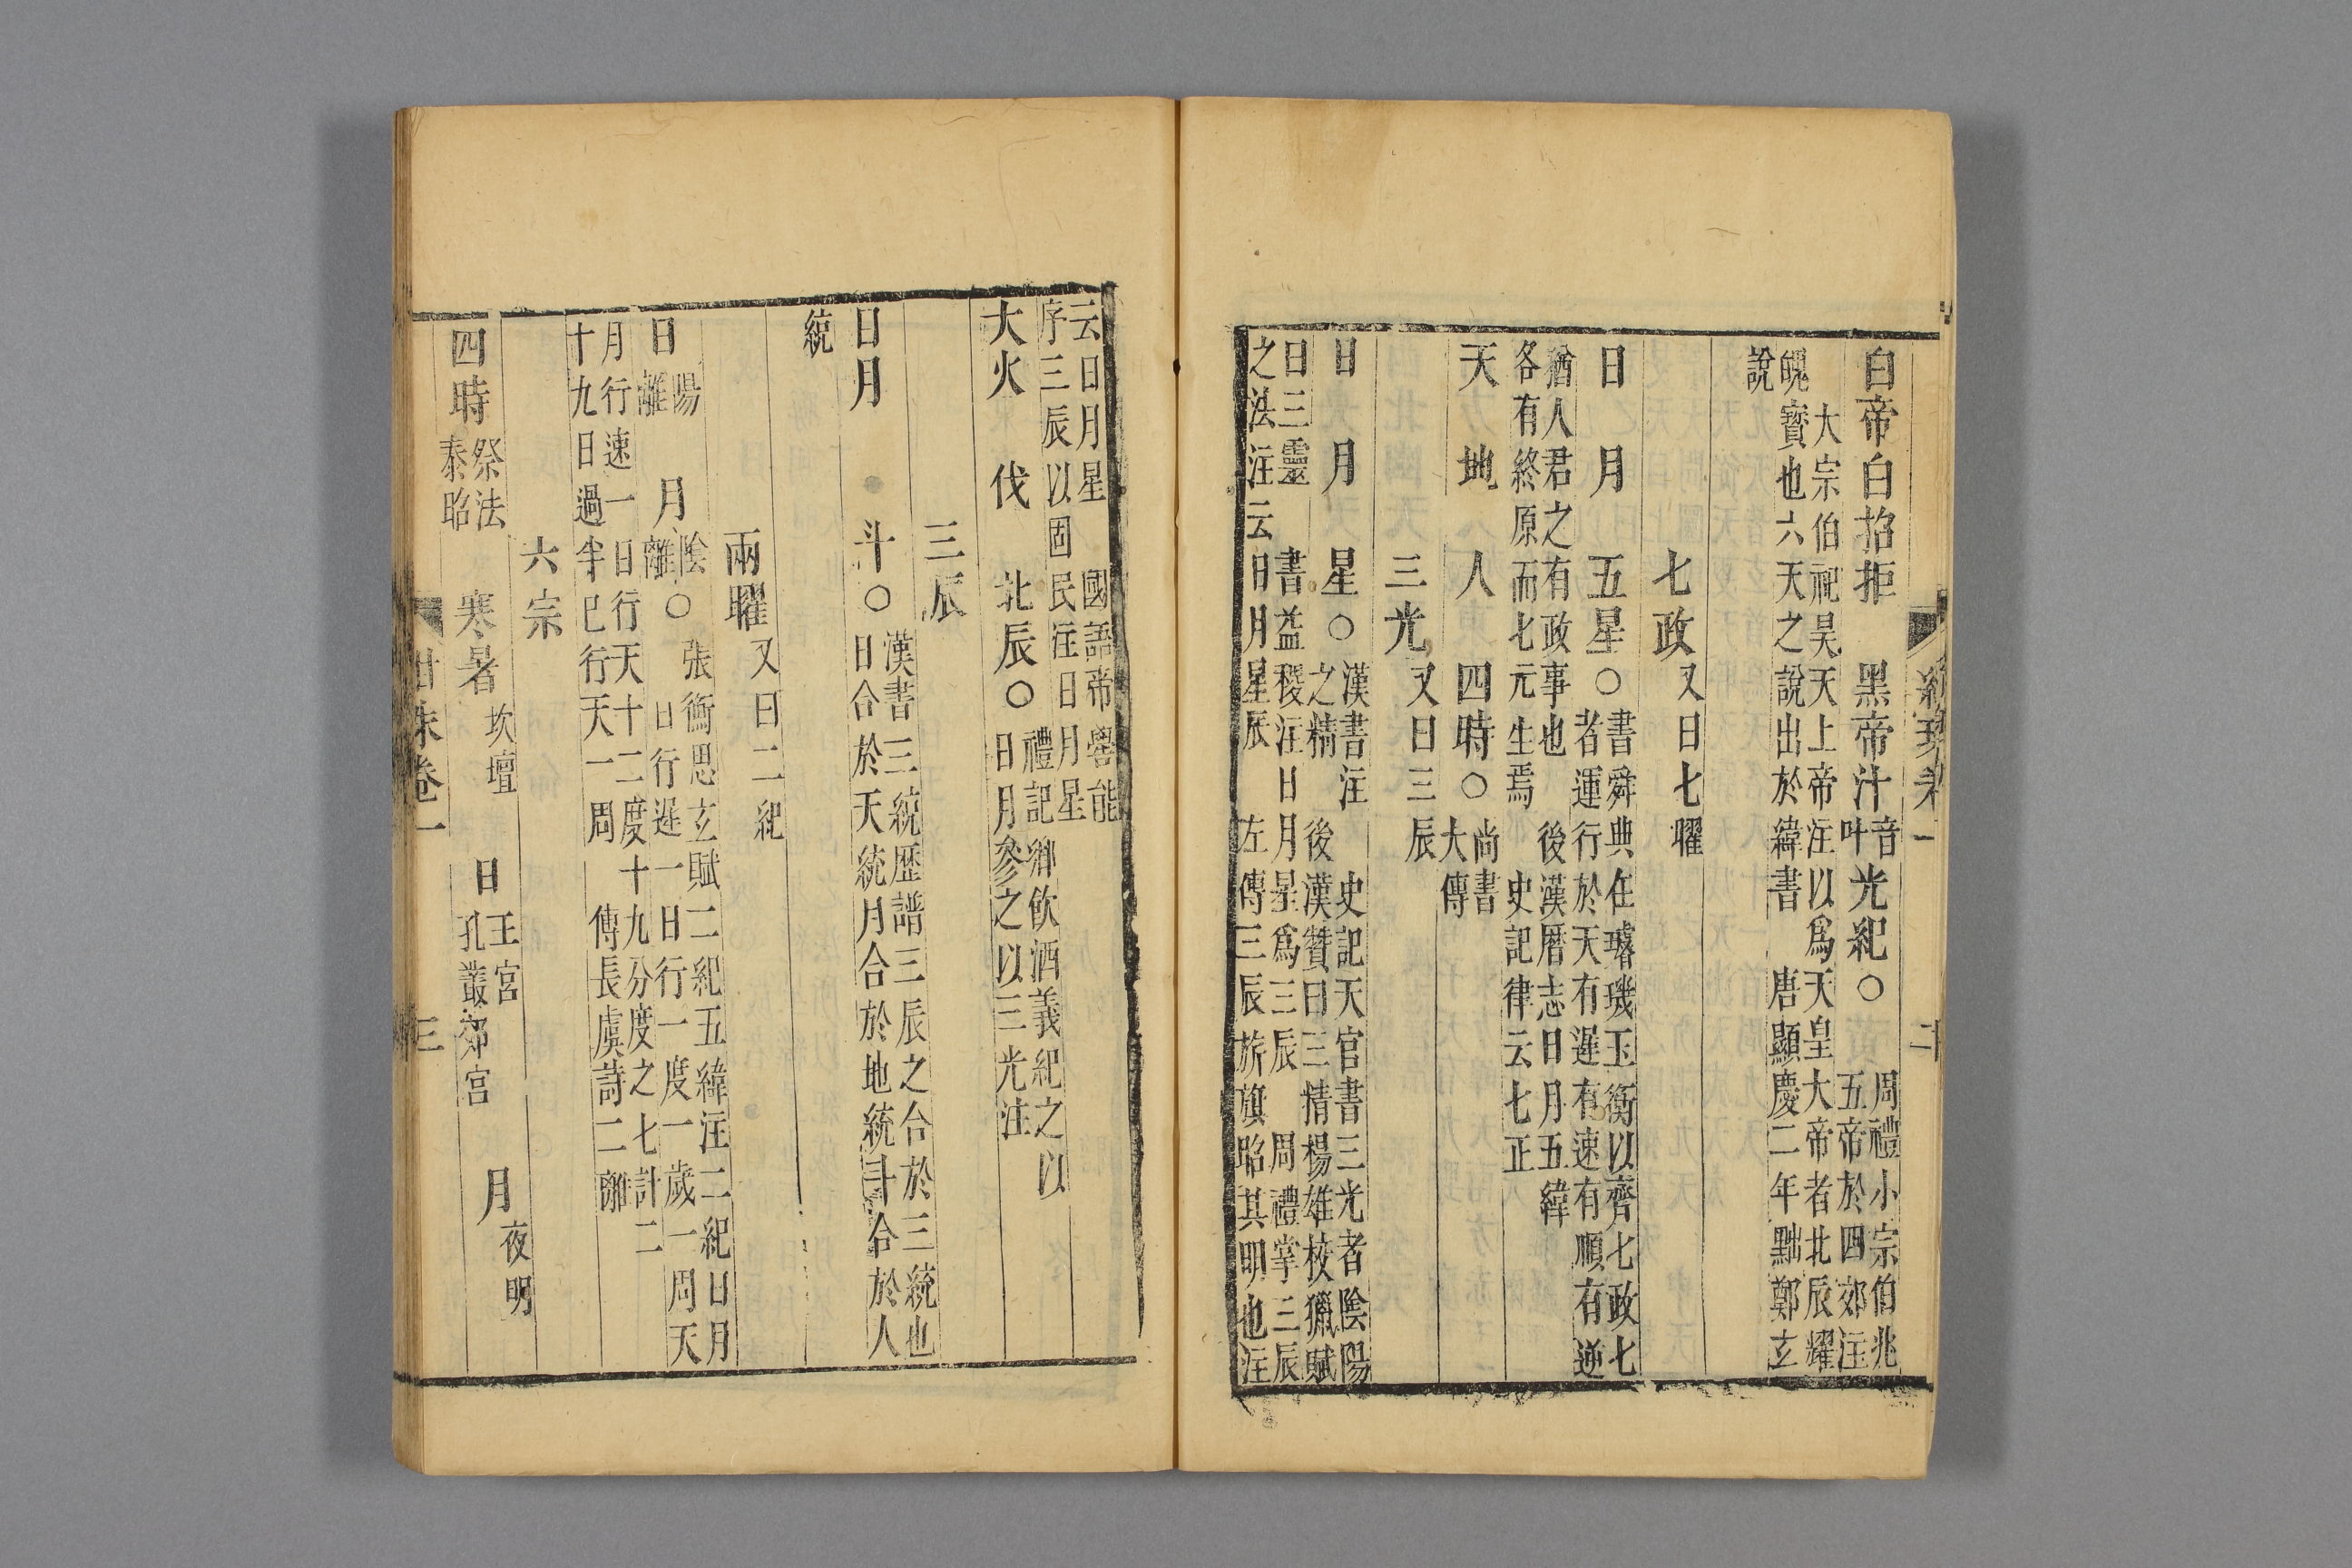 白帝白招拒　黑帝汁音叶光紀○周禮小宗伯兆
五帝於四郊注
大宗伯祀昊天上帝注以爲天皇大帝者北辰耀
魄寶也六天之說出於緯書　唐顯慶二年黜鄭玄
說
七政又曰七曜
日　月　五星○書舜典在璿璣玉衡以齊七政七
者運行於天有遲有速有順有逆
猶人君之有政事也　後漢厯志日月五緯
各有終原而七元生焉　史記律云七正
天　地　人　四時○尚書
大傳
三光又曰三辰
日　月　星○漢書注　史記天官書三光者陰陽
之精　後漢贊曰三精楊雄校獵賦
曰三靈　書益稷注日月星爲三辰　周禮掌三辰
之法注云日月星辰　左傳三辰旂旗昭其明也注
云日月星　國語帝嚳能
序三辰以固民注日月星
大火　伐　北辰○禮記鄉飲酒義紀之以
日月參之以三光注
三辰
日月　斗○漢書三統歷譜三辰之合於三統也
日合於天統月合於地統斗合於人
統
兩曜又曰二紀
日陽離　月陰離○張衡思玄賦二紀五緯注二紀日月
日行遲一日行一度一歲一周天
月行速一日行天十二度十九分度之七計二
十九日過半已行天一周　傳長虞詩二離
六宗
四時祭法泰昭　寒暑坎壇　日王宮孔叢郊宮　月夜明
卷一　三